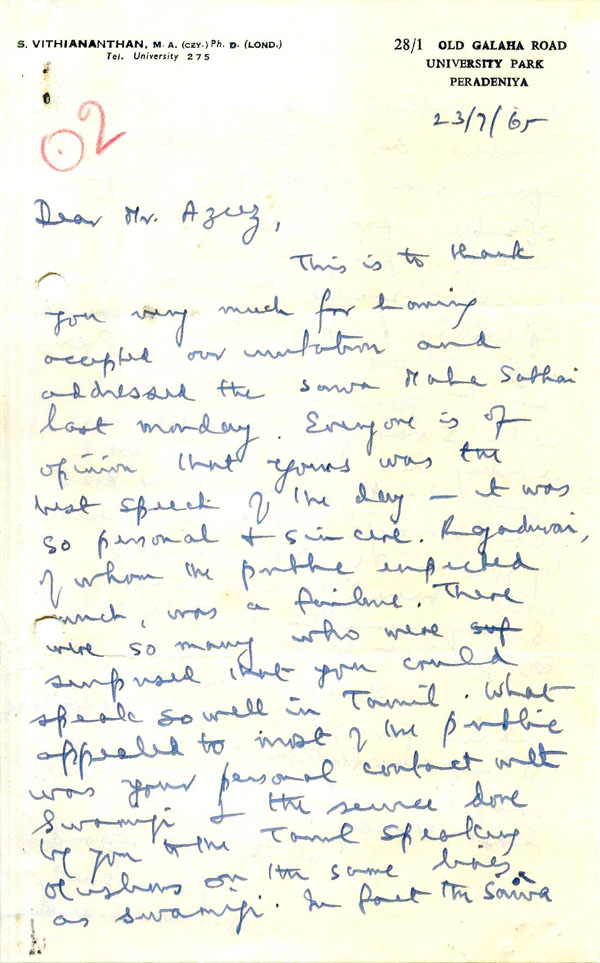 S. VITHIANANTHAN, M. A. (CEY.) Ph. D. (LOND.)
Tel. University 275
28/1 OLD GALAHA ROAD
UNIVERSITY PARK
PERADENIYA
23/7/65
02
Dear Mr. Azeez,
This is to thank
you very much for having
accepted our invitation and
addressed the Saiva Maha Sabhai
last monday. Everyone is of
opinion that yours was the
best speech of the day – it was
so personal & sincere. Rajadurai,
of whom the public expected
much, was a failure. There
were so many who were sup
surprised that you could
speak so well in Tamil. What
appealed to most of the public
was your personal contact with
Swamiji & the service done
by you to the Tamil speaking
on the same lines
as Swamiji. In fact the Saiva